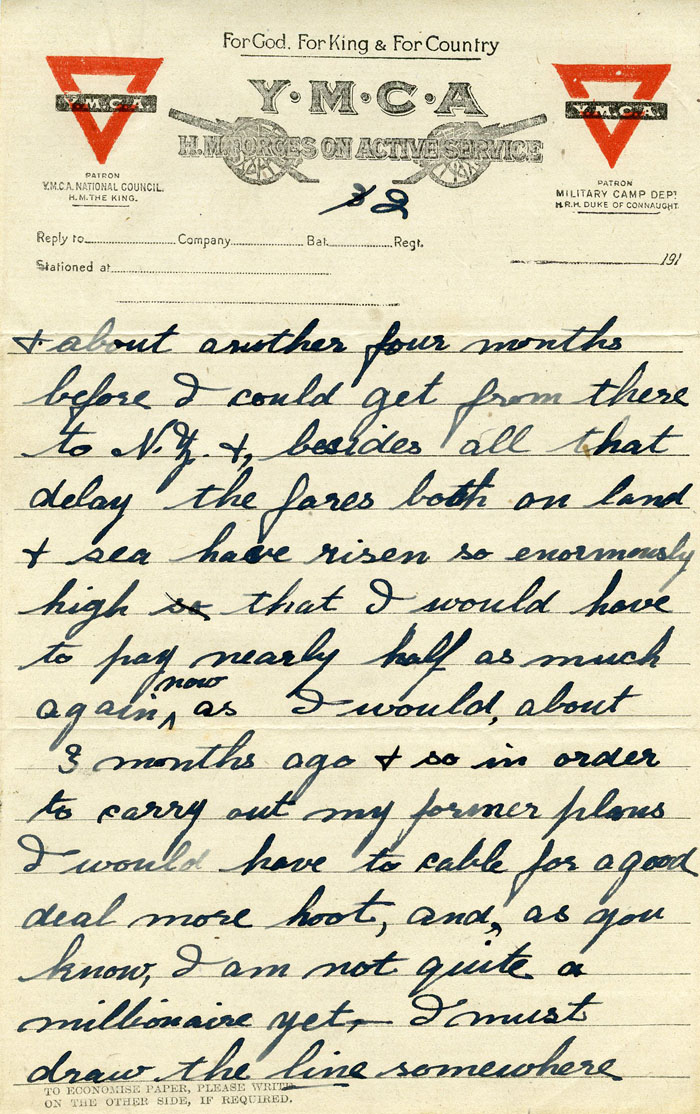 For God. For King & For Country
Y.M.C.A
Y.M.C.A.
Y·M·C·A
H.M. FORCES ON ACTIVE SERVICE
PATRON
Y.M.C.A. NATIONAL COUNCIL.
H.M. THE KING.
PATRON
MILITARY CAMP DEPT
H.R.H. DUKE OF CONNAUGHT.
2
Reply to Company Bat. Regt.
Stationed at 191
& about another four months
before I could get from there
to N.Z. &, besides all that
delay the fares both on land
& sea have risen so enormously
high so that I would have
to pay nearly half as much
again, now as I would, about
3 months ago & so in order
to carry out my former plans
I would have to cable for a good
deal more hoot, and, as you
know, I am not quite a
millionaire yet, — I must
draw the line somewhere
TO ECONOMISE PAPER, PLEASE WRITE
ON THE OTHER SIDE, IF REQUIRED.